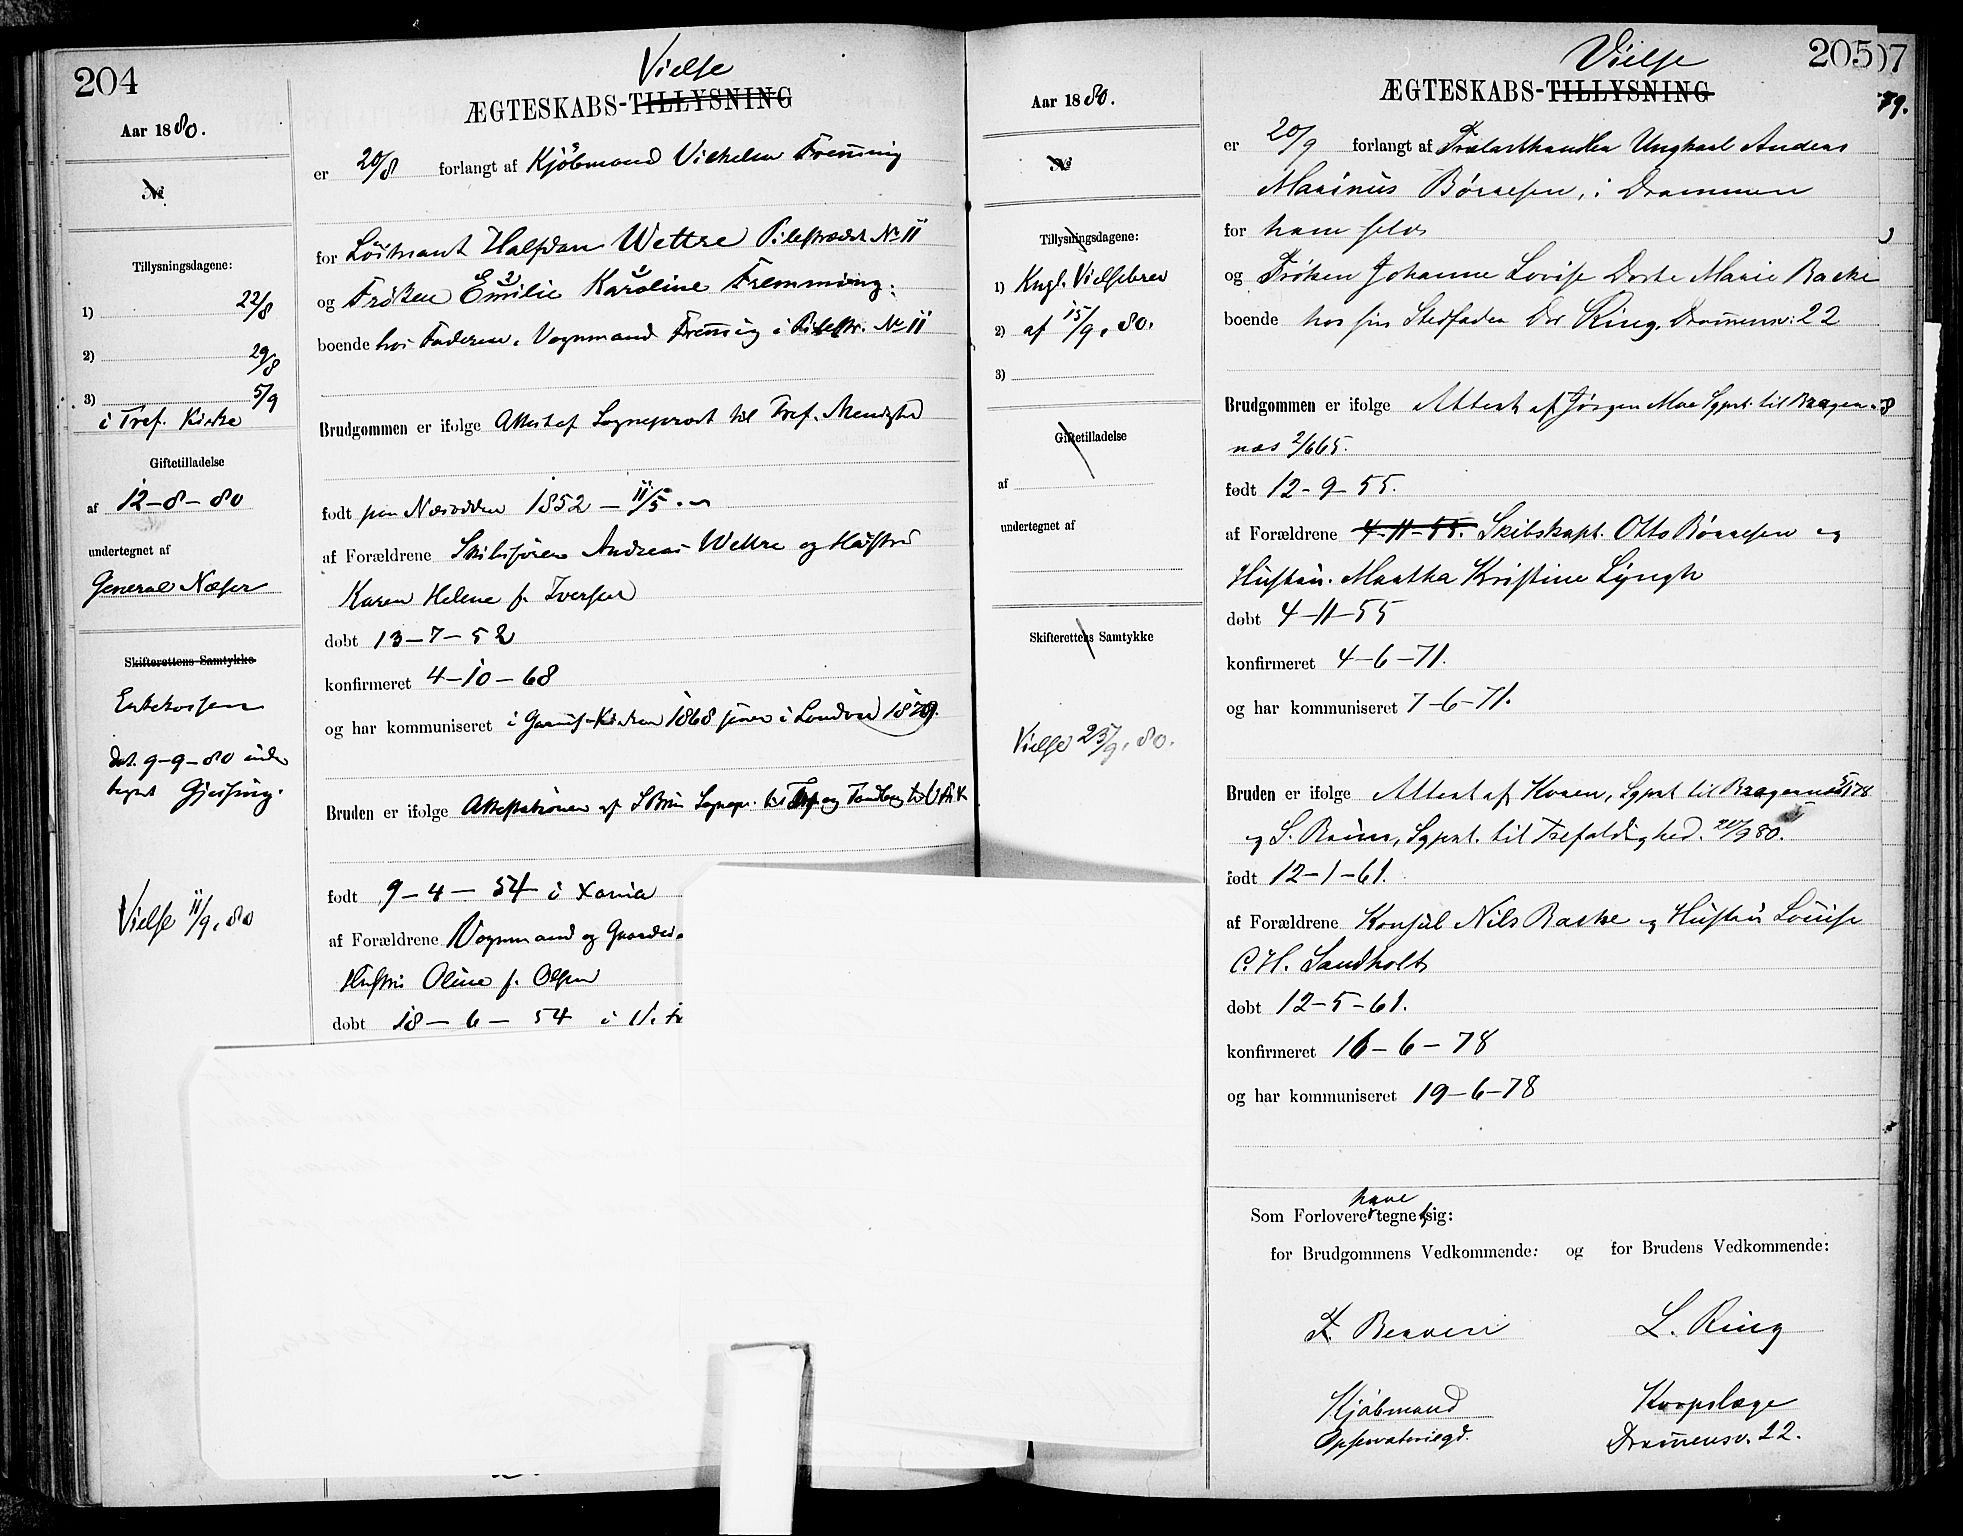 204
Vielse
ÆGTESKABS-TILLYSNING
Aar 1880.
№
Tillysningsdagene:
1) 22/8
2) 29/8
3) 5/9
i Tref. Kirke
Giftetilladelse
af 12-8-80
undertegnet af
General Næser
Skifterettens Samtykke
dat. 9-9-80 under
tegnet
Vielse 11/9.80
er 20/8 forlangt af Kjöbmand Vilhelm Fremming
for Löitnant Halfdan Wettre Pilestrædet No 11
og Fröken Emilie Karoline Fremming.
boende hos Faderen, Vognmand Fremming i Pilestr. No 11
Brudgommen er ifolge Attest af Sogneprest til Tref. Menighed
født paa Næsodden 1852 - 11/5
af Forældrene Andreas Wettre og Hustru
Karen Helene f. Iversen
døbt 13-7-52
konfirmeret 4-10-68
og har kommuniseret i Garnis-Kirken 1868 siden i London 1879.
Bruden er ifolge af S Brun Sognepr. til Tref og
født 9-4-54 i Xania
af Forældrene Vognmand og
Hustru Oline f. Olsen
døbt 18-6-54 i
Vielse
2057
ÆGTESKABS-TILLYSNING
79.
Aar 1880.
№
Tillysningsdagene:
1) Kngl. Vielsebrev
2) af 15/9. 80.
3)
Giftetilladelse
af
undertegnet af
Skifterettens Samtykke
Vielse 25/9. 80.
er 20/9 forlangt af Trælasthandler Ungkarl Anders
Marinus Børresen, i Drammen
for ham selv
og Frøken Johanne Lovise Dorte Marie Backe
boende hos sin Stedfader Dr Ring. Drammensv: 22
Brudgommen er ifolge Attest af Jørgen Moe Sgprst. til Bragernæs 2/6 65.
født 12-9-55.
af Forældrene 4-11-55. Skibskapt. Otto Børresen og
Hustru. Martha Kristine Lyngh
døbt 4-11-55
konfirmeret 4-6-71.
og har kommuniseret 7-6-71.
Bruden er ifolge Attest af Sgprst til Bragernæs
og S. Bruun, Sgprst. til Trefoldighed. 20/9 80.
født 12-1-61.
af Forældrene Konsul Nils Backe og Hustru Louise
C. H. Sandholt
døbt 12-5-61.
konfirmeret 16-6-78
og har kommuniseret 19-6-78
have
Som Forlovere tegnet sig:
for Brudgommens Vedkommende: og for Brudens Vedkommende:
L. Ring
Kjøbmand Korpslæge
Observatoriegd. Drammensv. 22.